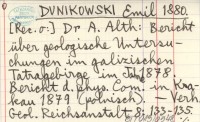 DUNIKOWSKI Emil 1880.
[Rec. o:] Dr A. Alth: Bericht
über geologische Untersu-
chungen im galizischen
Tatragebirge im J. 1878
Bericht d. phys. Com. in Kra-
kau 1879 (polnisch). — Verh.
Geol. Reichsanstalt 8: 133-135.